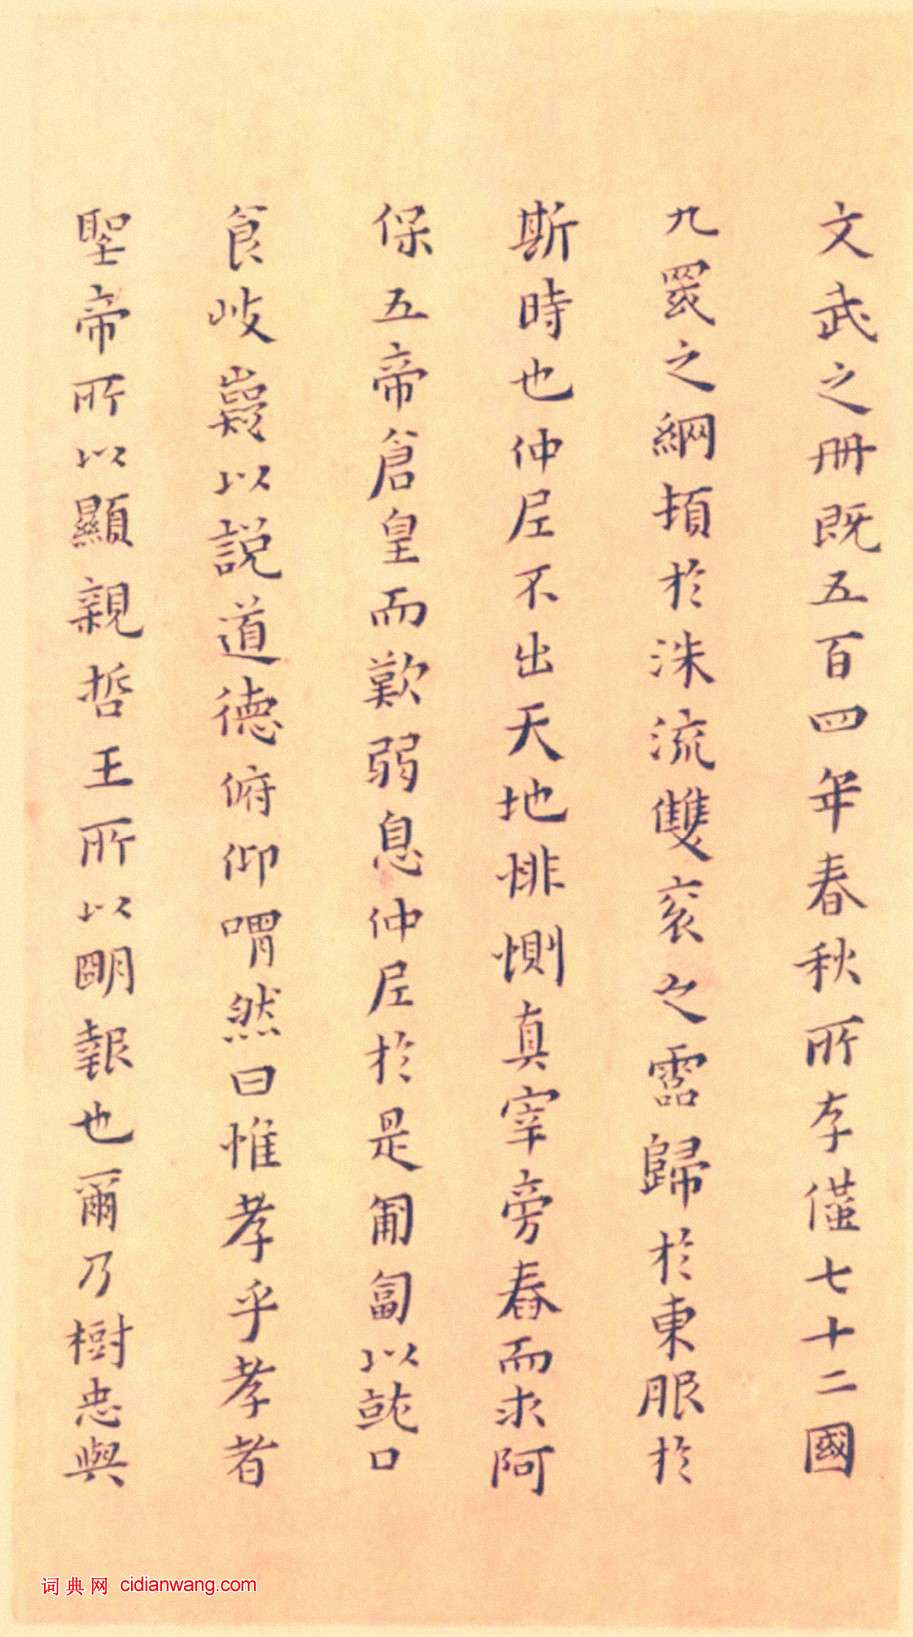 文武之冊既五百四年春秋所存僅七十二國
九罭之綱頓於洙流雙衮之靈歸於東服於
斯時也仲尼不出天地悱惻真宰旁春而求阿
保五帝倉皇而歎弱息仲尼於是匍匐以就口
食岐嶷以説道德俯仰喟然曰惟孝乎孝者
聖帝所以顯親哲王所以明報也爾乃樹忠與
词典网 cidianwang.com